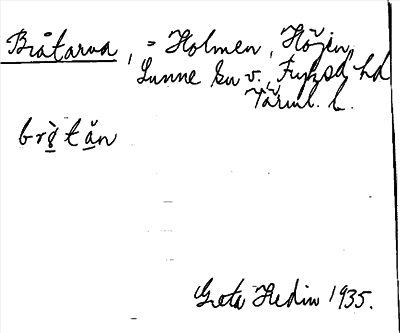 Bråtarna, = Holmen, Höjen,
Sunne sn v., Fryksd. hd
Värml. l.
brὸ̱tǎ̱n
Greta Hedin 1935.